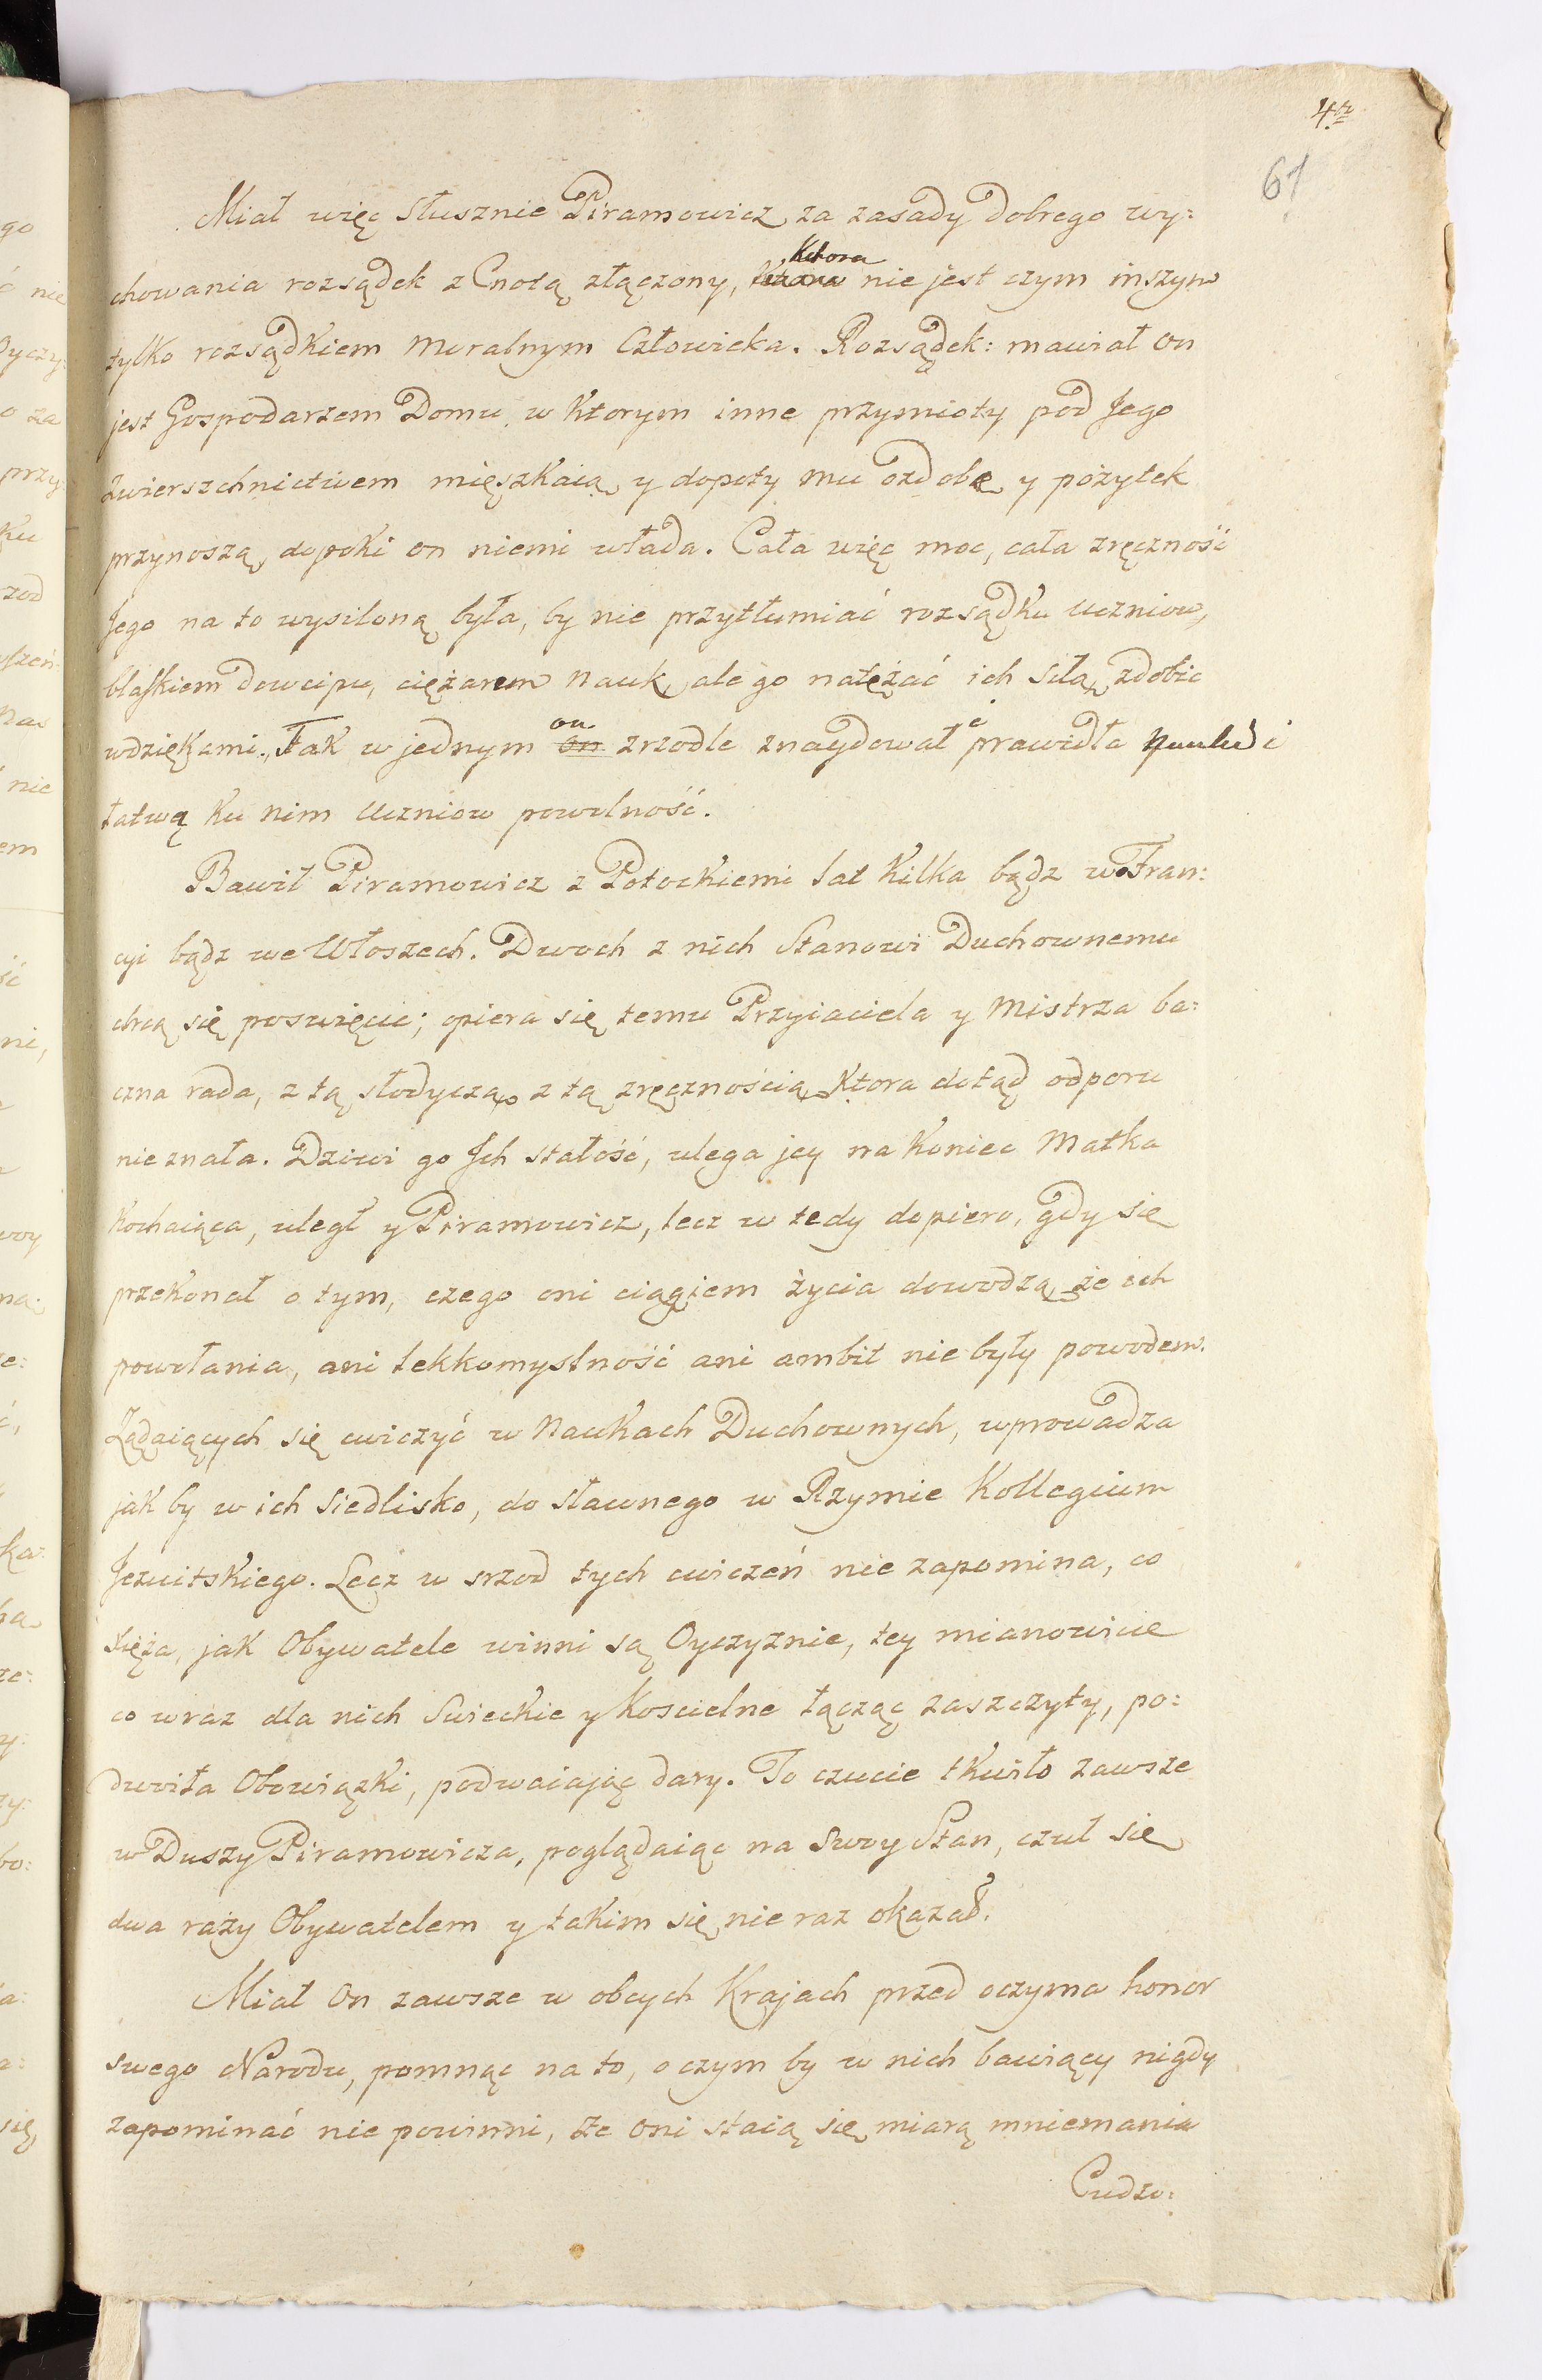 4to
61
Miał więc słusznie Piramowicz za zasady dobrego wy:
chowania rozsądek z Cnotą złączony, Ktora nie jest czym inszym
tylko rozsądkiem moralnym Człowieka. Rozsądek: mawiał on
jest Gospodarzem Domu, w Ktorym inne przymioty pod Jego
zwierszchnictwem mięszkaią, y dopoty mu ozdobę y pożytek
przynoszą, dopoki on niemi włada. Cała więc moc, cała zręczność
Jego na to wysiloną była, by nie przytłumiać rozsądku Uczniow,
blaskiem dowcipu, ciężarem Nauk, ale go natężać ich siłą, zdobić
wdziękami. Tak w jednym on on zrzodle znaydował i prawidła Nauki i
łatwą ku nim Uczniow powolność.
Bawił Piramowicz z Potockiemi lat Kilka bądz w Fran:
cyi bądz we Włoszech. Dwoch z nich Stanowi Duchownemu
chcą się poswięcić; opiera się temu Przyiaciela y Mistrza ba:
czna rada, z tą słodyczą, z tą zręcznością, Ktora dotąd odporu
nie znała. Dziwi go Jch stałość, ulega jey na koniec Matka
Kochaiąca, uległ y Piramowicz, lecz w tedy dopiero, gdy się
przekonał o tym, czego oni ciągiem życia dowodzą, że ich
powołania, ani lekkomyslność ani ambit nie były powodem.
Żądaiących się cwiczyć w Naukach Duchownych, wprowadza
jak by w ich siedlisko, do sławnego w Rzymie Kollegium
Jezuitskiego. Lecz w srzod tych cwiczeń nie zapomina, co
Xięża, jak Obywatele winni są Oyczyznie, tey mianowicie
co wraz dla nich Swieckie y Koscielne łącząc zaszczyty, po:
dwoiła Obowiązki, podwaiając dary. To czucie tkwiło zawsze
w Duszy Piramowicza, poglądaiąc na Swoy Stan, czuł się
dwa razy Obywatelem y takim się nie raz okazał.
Miał On zawsze w obcych Krajach przed oczyma honor
swego Narodu, pomnąc na to, o czym by w nich bawiący nigdy
zapominać nie powinni, że oni staią się miarą mniemania
Cudzo: